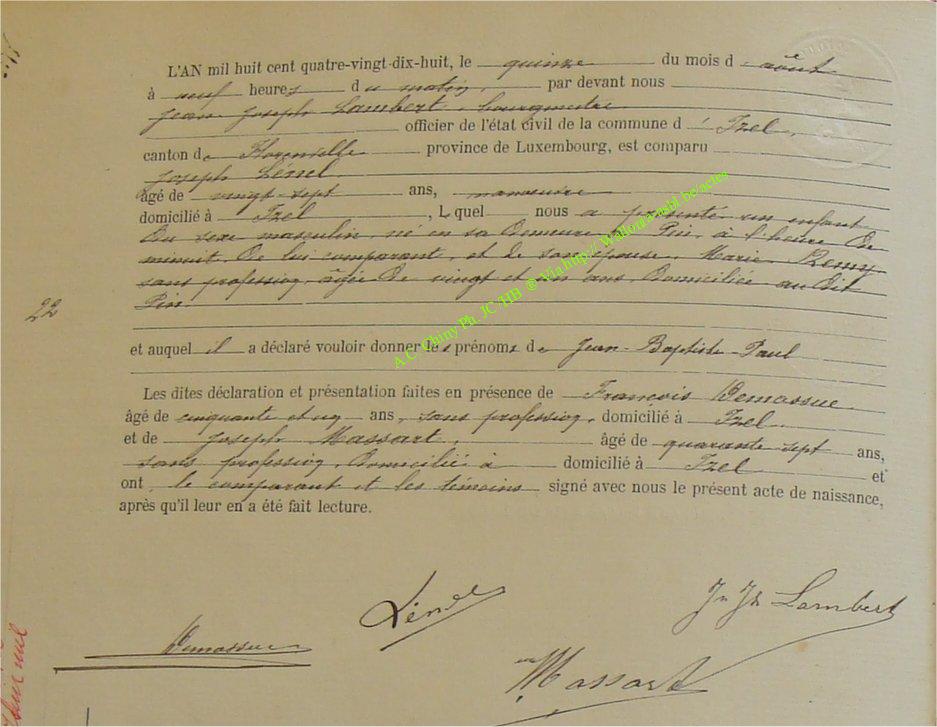 L'AN mil huit cent quatre-vingt-dix-huit, le quinze du mois d août
à neuf heures du matin, par devant nous
Jean Joseph Lambert, bourgmestre
officier de l'état civil de la commune d' Izel,
canton de Florenville province de Luxembourg, est comparu
Joseph Lénel
âgé de vingt-sept ans, manœuvre
domicilié à Izel, Lequel nous a présenté un enfant
du sexe masculin né en sa demeure, Pin, à l'heure de
minuit, de lui comparant, et de son épouse, Marie Remy
sans profession, âgée de vingt et un ans, domiciliée au dit
Pin.
22
et auquel il a déclaré vouloir donner les prénoms de Jean-Baptiste-Paul
Les dites déclaration et présentation faites en présence de François Demassue
âgé de cinquante et un ans, sans profession, domicilié à Izel
et de Joseph Massart, âgé de quarante sept ans,
sans profession, domicilié à domicilié à Izel et
ont le comparant et les témoins signé avec nous le présent acte de naissance,
après qu'il leur en a été fait lecture.
Lénel
Jn Jh Lambert
Demassue
Massart
A.C. Chiny Ph. JC /HB @ Via http:// Wallonia-asbl.be/actes